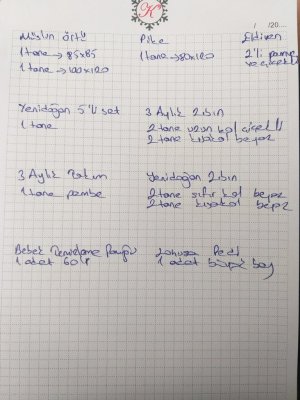 K
/ /20....
Müslin Örtü
1 tane → 85x85
1 tane → 100x120
Pike
1 tane → 80x120
Eldiven
2'li pembe
ve çiçekli
Yenidoğan 5'li set
1 tane
3 Aylık Zıbın
2 tane uzun kol çiçekli
2 tane kısakol beyaz
3 Aylık Takım
1 tane pembe
Yenidoğan Zıbın
2 tane sıfır kol beyaz
2 tane kısakol beyaz
Bebek Temizleme Pamuğu
1 adet 60'lı
Lohusa Pedi
1 adet büyük boy